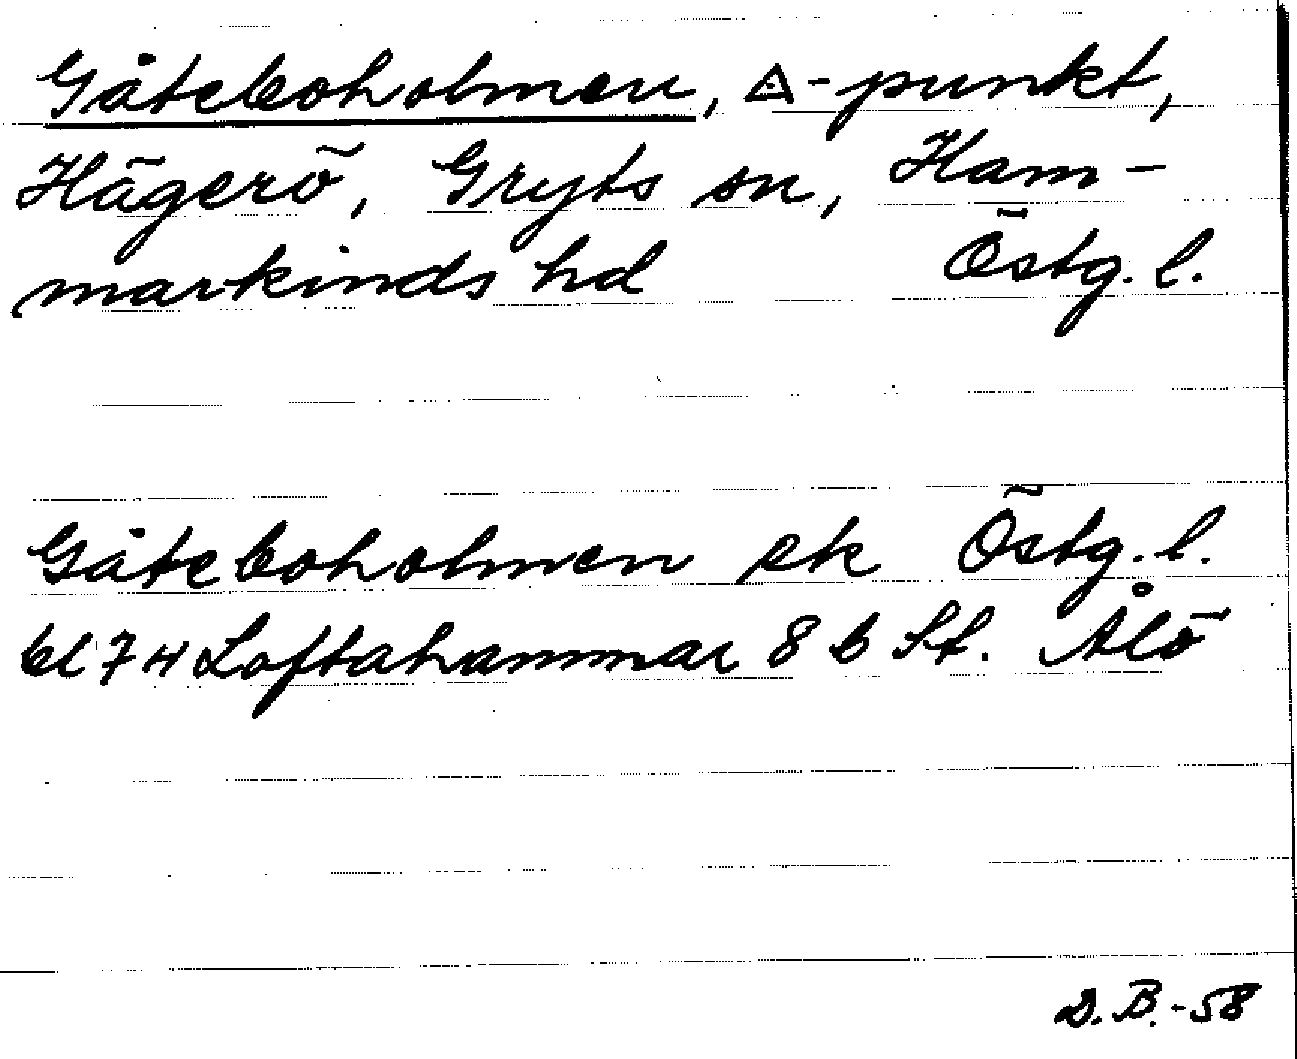 Gåteboholmen, △-punkt,
Hägerö, Gryts sn, Ham-
markinds hd Östg. l.
Gåteboholmen ek Östg. l.
bl 7 H Loftahammar 8 b St. Ålö
D. B. -58